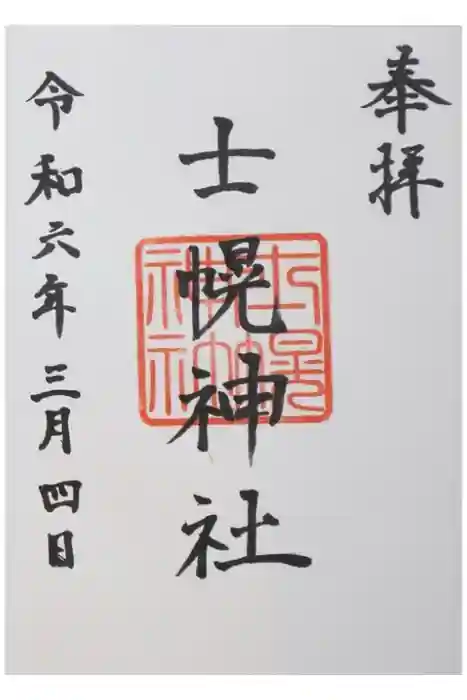 奉拝
士幌神社
士幌神社
令和六年三月四日